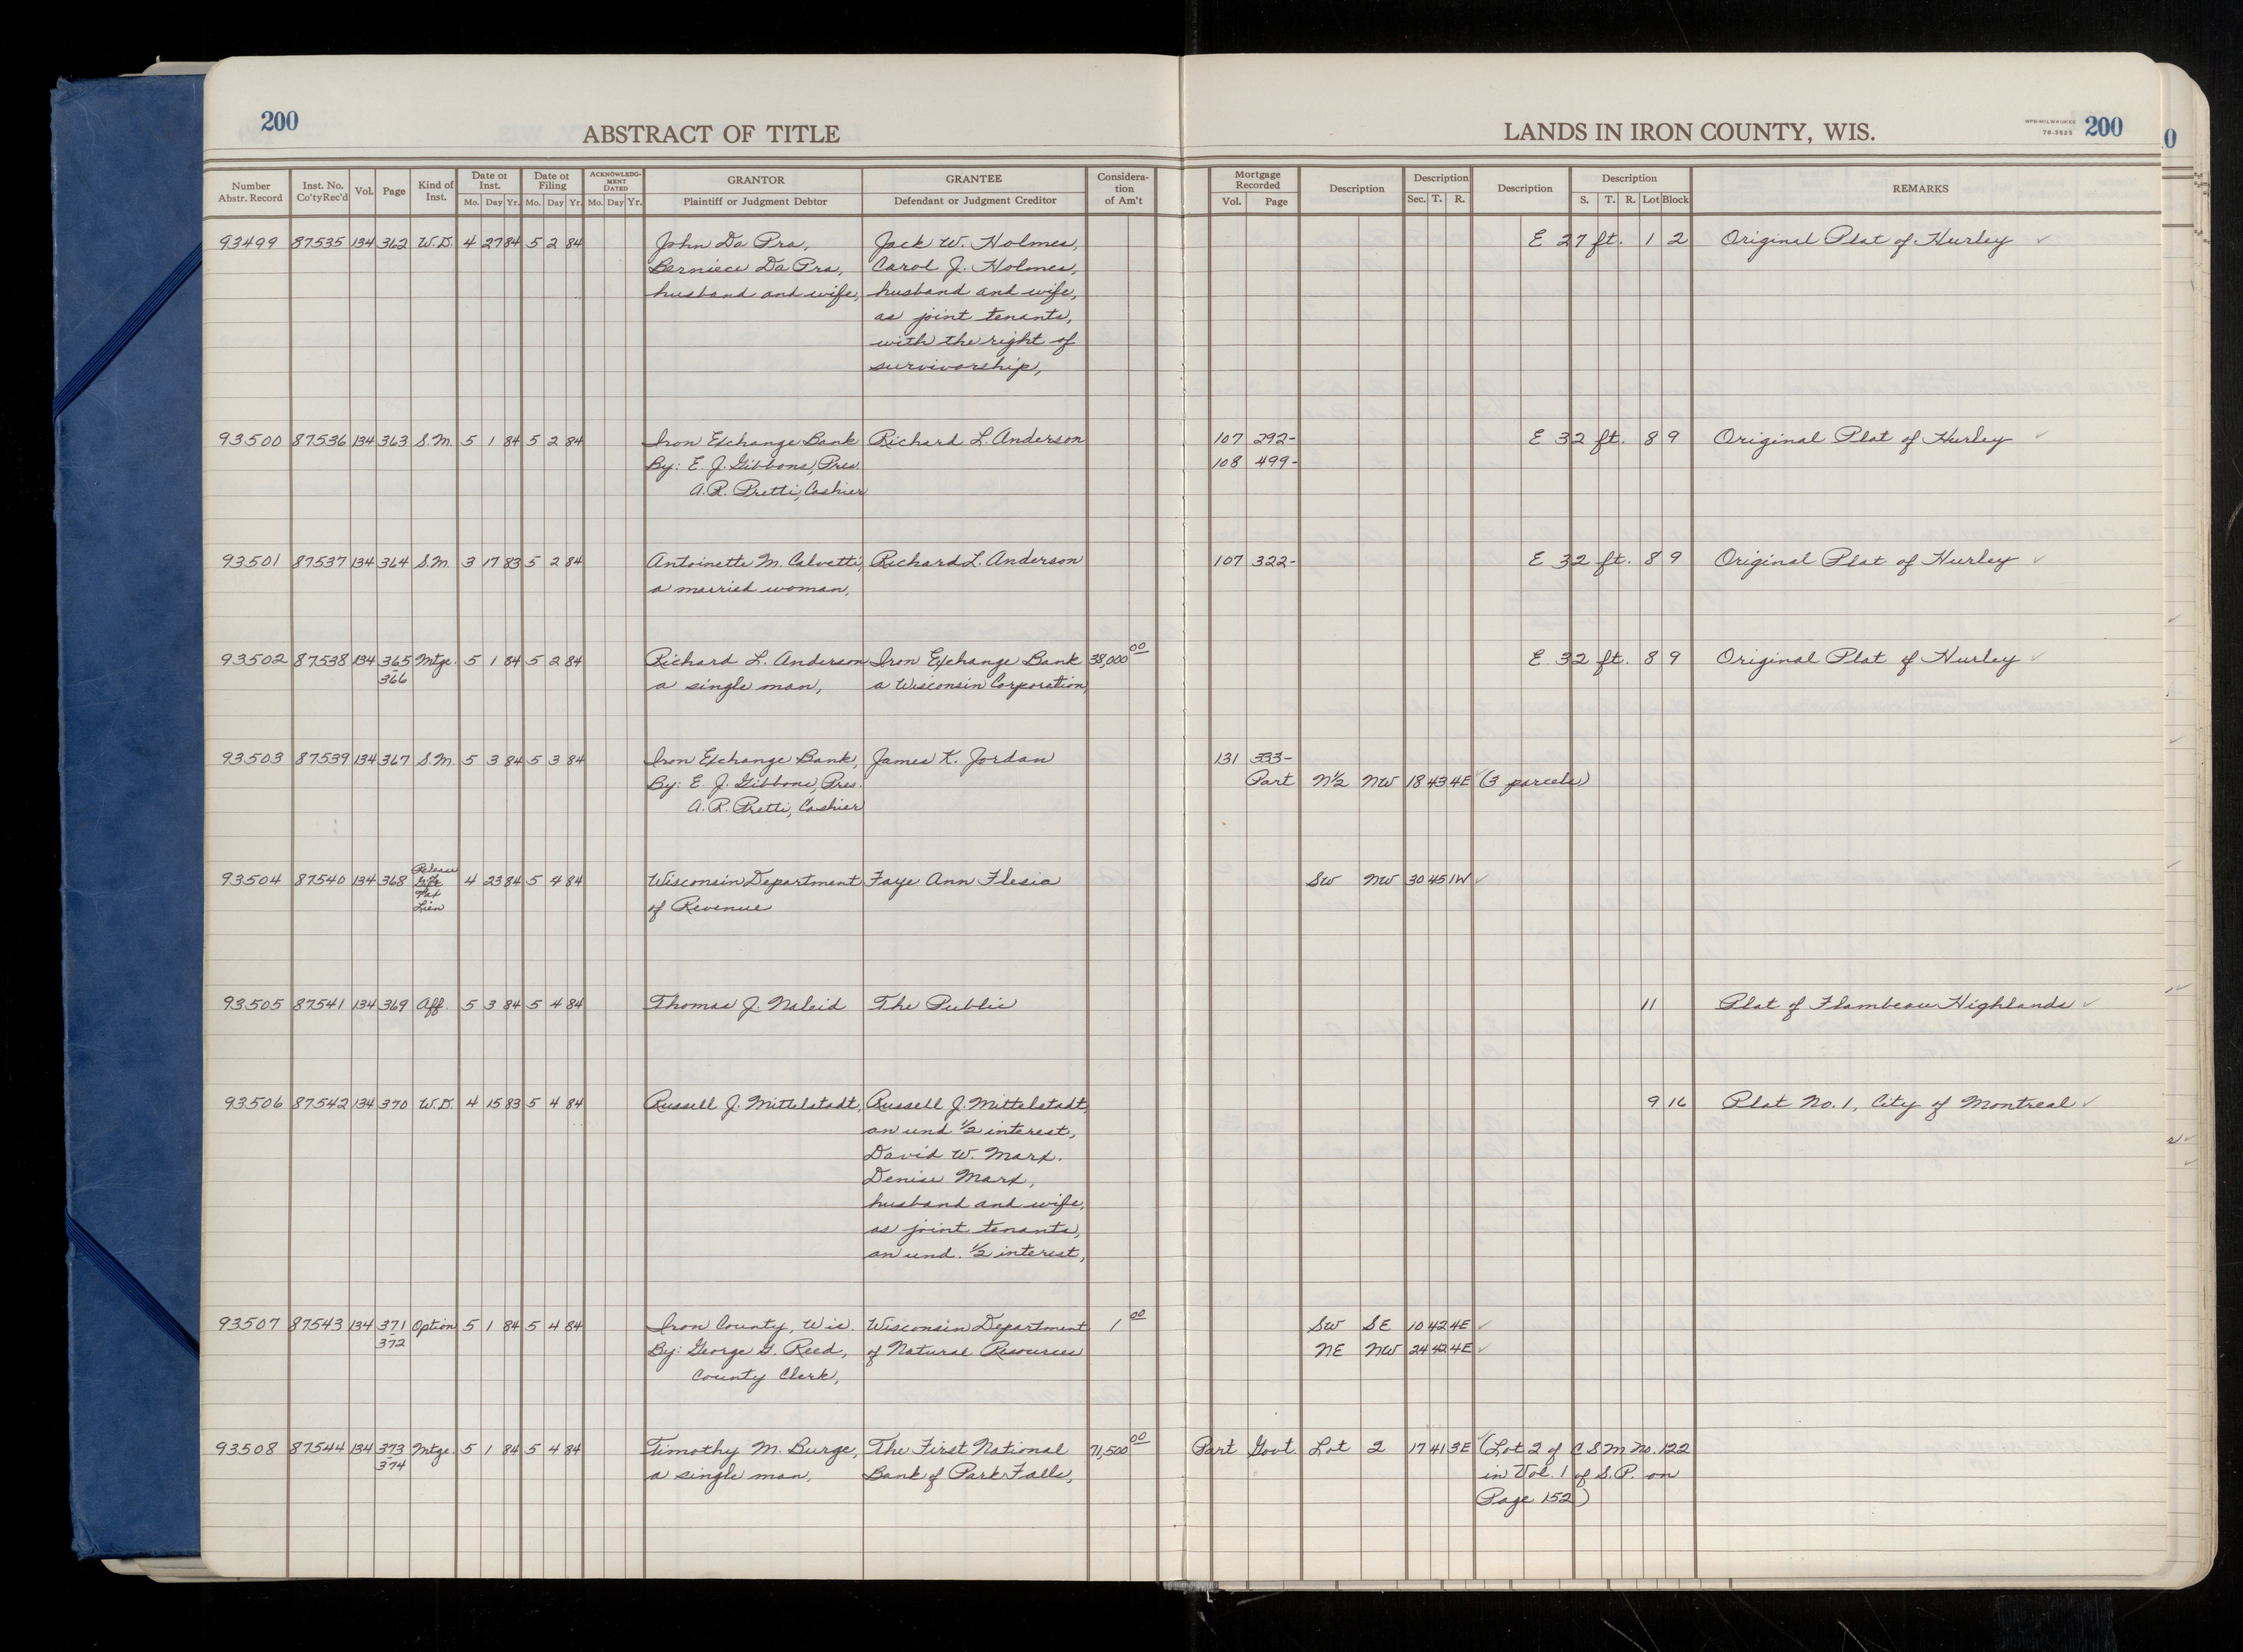 200
ABSTRACT OF TITLE
LANDS IN IRON COUNTY, WIS.
WPB-MILWAUKEE
78-3525
200
Number Abstr. Record Inst. No. Co'tyRec'd Vol. Page Kind of Inst. Date of Inst. Mo. Day Yr. Date of Filing Mo. Day Yr. ACKNOWLEDGMENT DATED Mo. Day Yr. GRANTOR Plaintiff or Judgment Debtor GRANTEE Defendant or Judgment Creditor Consideration of Am't Mortgage Recorded Vol. Page Description Description Sec. T. R. Description Description S. T. R. Lot Block REMARKS
93499 87535 134 362 W.D. 4 27 84 5 2 84 John Da Pra, Jack W. Holmes, E 27 ft. 1 2 Original Plat of Hurley ✓
Berniece Da Pra, Carol J. Holmes,
husband and wife, husband and wife,
as joint tenants,
with the right of
survivorship,
93500 87536 134 363 S.M. 5 1 84 5 2 84 Iron Exchange Bank Richard L. Anderson 107 292- E 32 ft. 8 9 Original Plat of Hurley ✓
By: E. J. Gibbons, Pres. 108 499-
A.R. Pretti, Cashier
93501 87537 134 364 S.M. 3 17 83 5 2 84 Antoinette M. Calvetti, Richard L. Anderson 107 322- E 32 ft. 8 9 Original Plat of Hurley ✓
a married woman,
93502 87538 134 365 Mtge. 5 1 84 5 2 84 Richard L. Anderson Iron Exchange Bank 38,000 00 E 32 ft. 8 9 Original Plat of Hurley ✓
- 366 a single man, a Wisconsin Corporation,
93503 87539 134 367 S.M. 5 3 84 5 3 84 Iron Exchange Bank, James K. Jordan 131 333-
By: E. J. Gibbons, Pres. Part N½ NW 18 43 4E ✓ (3 parcels)
A.R. Pretti, Cashier
Release
93504 87540 134 368 4 23 84 5 4 84 Wisconsin Department Faye Ann Flesia SW NW 30 45 1W ✓
Tax
Lien of Revenue
93505 87541 134 369 Aff. 5 3 84 5 4 84 Thomas J. Naleid The Public 11 Plat of Flambeau Highlands ✓
93506 87542 134 370 W.D. 4 15 83 5 4 84 Russell J. Mittelstadt, Russell J. Mittelstadt, 9 16 Plat No. 1, City of Montreal ✓
an und. ½ interest,
David W. Marx.
Denise Marx,
husband and wife,
as joint tenants,
an und. ½ interest,
93507 87543 134 371 Option 5 1 84 5 4 84 Iron County, Wis. Wisconsin Department 1 00 SW SE 10 42 4E ✓
- 372 By: George G. Reed, of Natural Resources NE NW 24 42 4E ✓
County Clerk,
93508 87544 134 373 Mtge. 5 1 84 5 4 84 Timothy M. Burge, The First National 71,500 00 Part Govt. Lot 2 17 41 3E ✓ (Lot 2 of C S M No. 122
- 374 a single man, Bank of Park Falls, in Vol. 1 of S.P. on
Page 152)